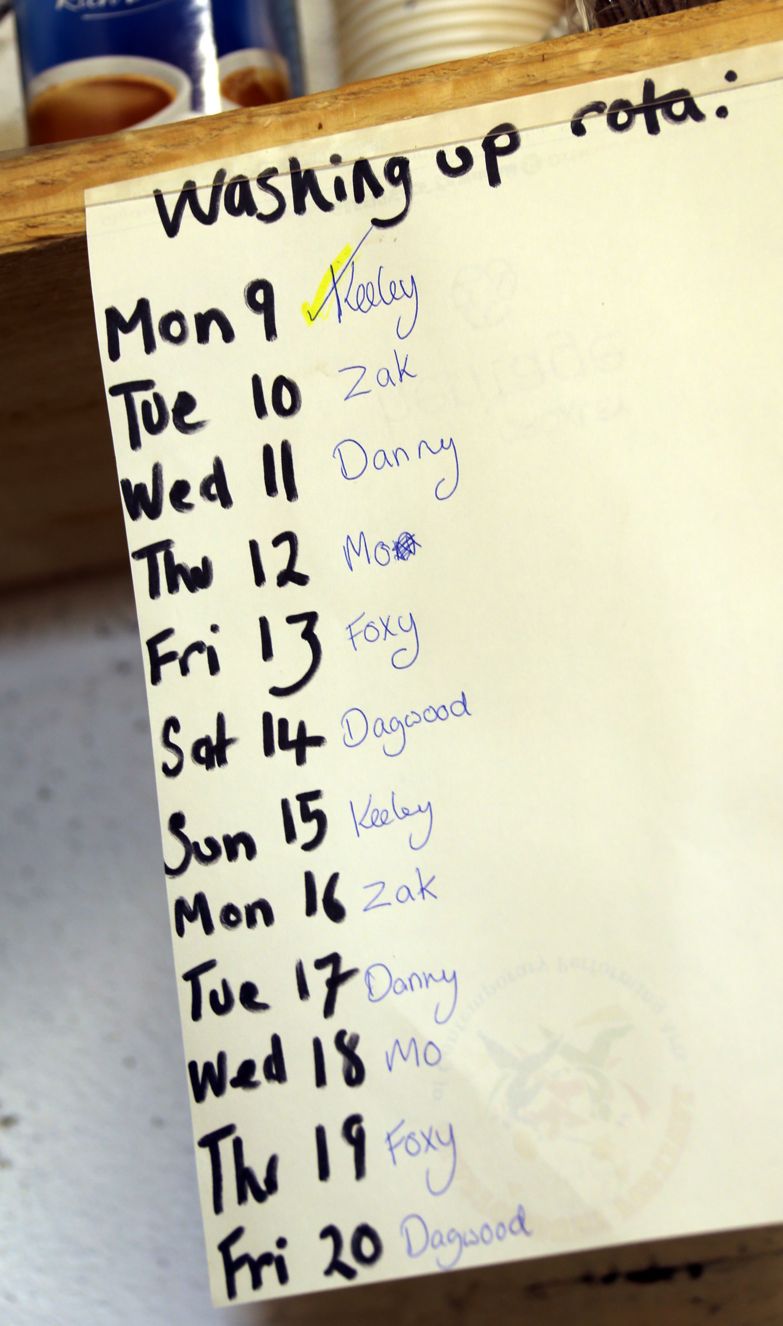 Washing up rota:
Mon 9 Keeley
Tue 10 Zak
Wed 11 Danny
Thu 12 Mo
Fri 13 Foxy
Sat 14 Dagwood
Sun 15 Keeley
Mon 16 Zak
Tue 17 Danny
Wed 18 Mo
Thu 19 Foxy
Fri 20 Dagwood